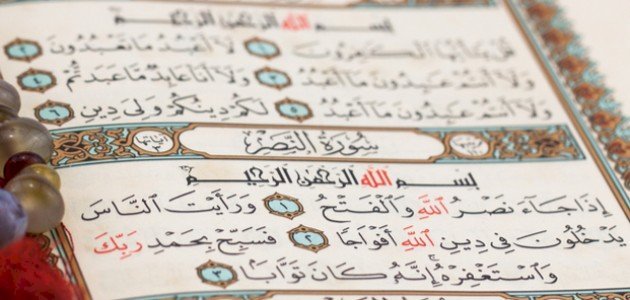 بِسْمِ اللَّهِ الرَّحْمَٰنِ الرَّحِيمِ
قُلْ يَٰٓأَيُّهَا ٱلْكَٰفِرُونَ ١ لَآ أَعْبُدُ مَا تَعْبُدُونَ ٢
وَلَآ أَنتُمْ عَٰبِدُونَ مَآ أَعْبُدُ ٣ وَلَآ أَنَا۠ عَابِدٌ مَّا عَبَدتُّمْ ٤
وَلَآ أَنتُمْ عَٰبِدُونَ مَآ أَعْبُدُ ٥ لَكُمْ دِينُكُمْ وَلِيَ دِينِ ٦
سُورَةُ النَّصْرِ
بِسْمِ اللَّهِ الرَّحْمَٰنِ الرَّحِيمِ
إِذَا جَآءَ نَصْرُ ٱللَّهِ وَٱلْفَتْحُ ١ وَرَأَيْتَ ٱلنَّاسَ
يَدْخُلُونَ فِي دِينِ ٱللَّهِ أَفْوَاجًا ٢ فَسَبِّحْ بِحَمْدِ رَبِّكَ
وَٱسْتَغْفِرْهُ ۚ إِنَّهُۥ كَانَ تَوَّابًۢا ٣